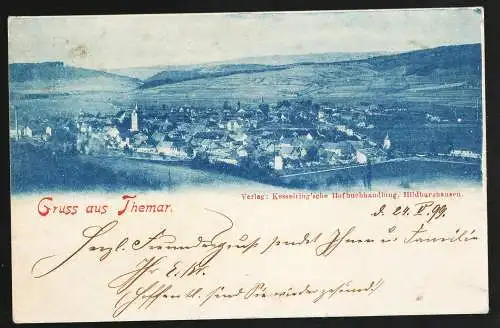 Verlag: Kesselring'sche Hofbuchhandlung, Hildburghausen.
Gruss aus Themar.
d. 24. V. 99.
Herzl. Freundesgruss sendet Ihnen u. Familie
Ihr E.
Hoffentl. sind Sie wieder gesund!